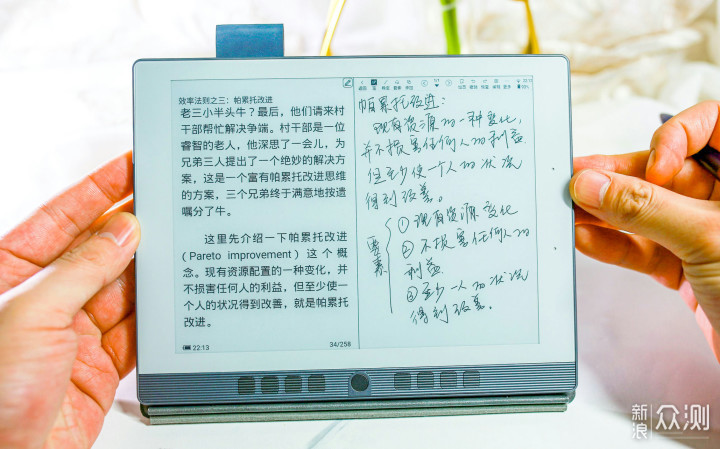 效率法则之三：帕累托改进
老三小半头牛？最后，他们请来村
干部帮忙解决争端。村干部是一位
睿智的老人，他深思了一会儿，为
兄弟三人提出了一个绝妙的解决方
案，这是一个富有帕累托改进思维
的方案，三个兄弟终于满意地按遗
嘱分了牛。
这里先介绍一下帕累托改进
(Pareto improvement) 这个概
念。现有资源配置的一种变化，并
不损害任何人的利益，但至少使一
个人的状况得到改善，就是帕累托
改进。
22:13
34/258
帕累托改进：
现有资源的一种变化，
并不损害任何人的利益
但至少使一个人的状况
得到改善。
要素
① 现有资源变化
② 不损害任何人的
利益
③ 至少一人的状况
得到改善.
新浪众测